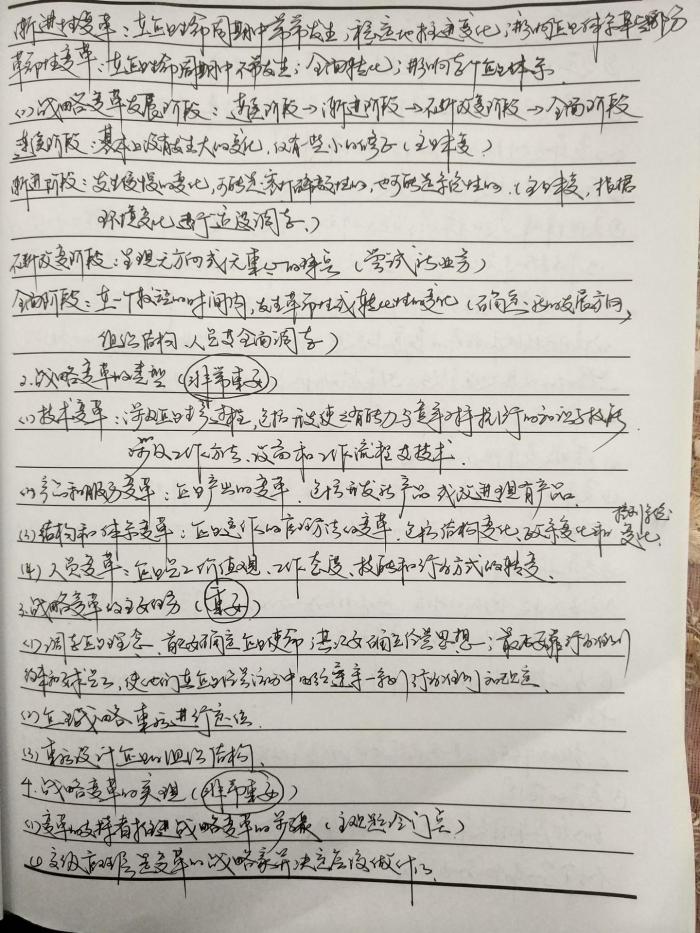 渐进性变革：在企业生命周期中常常发生；稳定地推进变化；影响企业体系某些部分
革命性变革：在企业生命周期中不常发生；全面转化；影响整个企业体系
(1)战略变革发展阶段：连续阶段→渐进阶段→不断改变阶段→全面阶段
连续阶段：基本上没有发生大的变化，仅有一些小的修正（主业未变）
渐进阶段：发生缓慢的变化，可能是零打碎敲性的，也可能是系统性的.（主业未变，根据
环境变化进行适度调整.）
不断改变阶段：呈现无方向或无重心的特点（尝试新业务）
全面阶段：在一个较短的时间内，发生革命性或转化性的变化（已确定新的发展方向，
组织结构、人员等全面调整）
2.战略变革的类型（非常重要）
(1)技术变革：涉及企业生产过程，包括开发使之有能力与竞争对手抗衡的知识与技能.
涉及工作方法、设备和工作流程等技术.
(2)产品和服务变革：企业产出的变革.包括开发新产品或改进现有产品.
(3)结构和体系变革：企业运作的管理方法的变革.包括结构变化、政策变化和控制系统变化.
(4)人员变革：企业员工价值观、工作态度、技能和行为方式的转变.
3.战略变革的主要任务（重要）
(1)调整企业理念.首先确定企业使命；其次确立经营思想；最后要靠行为准则
约束和要求员工，使他们在企业经营活动中始终遵守一系列行为准则和规定
(2)企业战略重新进行定位.
(3)重新设计企业的组织结构.
4.战略变革的实现（非常重要）
(1)变革的支持者推进战略变革的步骤（主观题冷门点）
①高级管理层是变革的战略家并决定应该做什么.